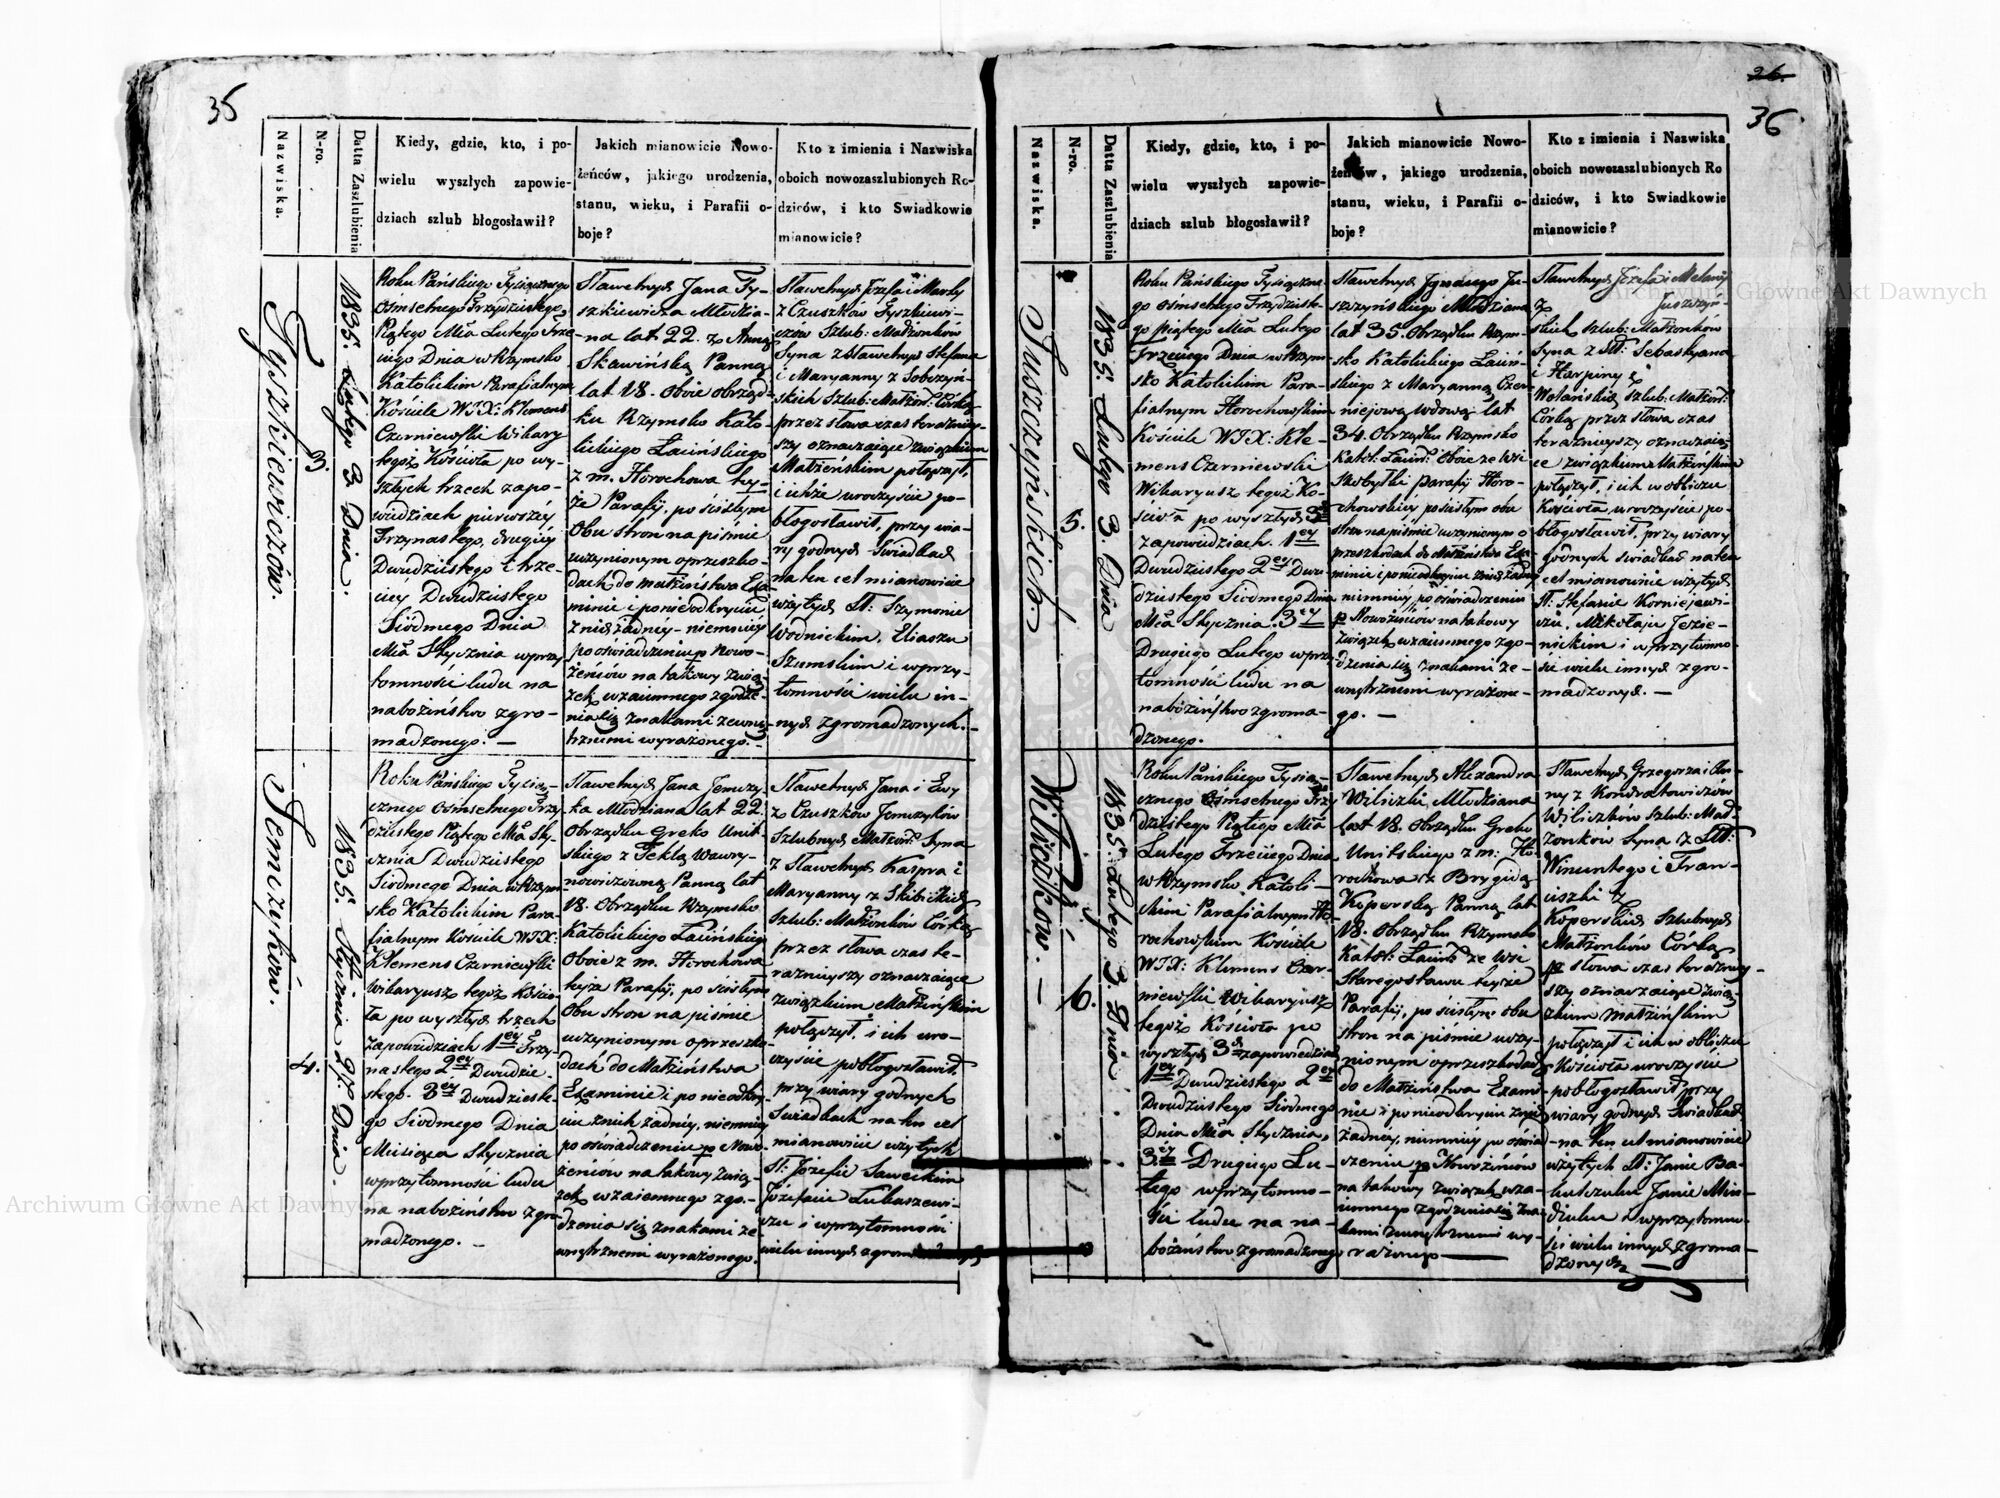 35
Nazwiska.
N-ro.
Datta Zaszlubienia
Kiedy, gdzie, kto, i po-
wielu wyszłych zapowie-
dziach szlub błogosławił?
Jakich mianowicie Nowo-
żeńców, jakiego urodzenia,
stanu, wieku, i Parafii o-
boje?
Kto z imienia i Nazwiska
oboich nowozaszlubionych Ro-
dziców, i kto Swiadkowie
mianowicie?
Tyszkiewiczów.
3.
1835 Lutego 3 Dnia.
Roku Pańskiego Tysiącznego
Osmsetnego Trzydziestego
Piątego Mca Lutego Trze
ciego Dnia w Rzymsko
Katolickim Parafialnym
Kościele WJX: Klemens
Czerniewski Wikary
tegoż Kościoła po wy-
szłych trzech zapo-
wiedziach pierwszej
Trzynastego, drugiéy
Dwudziestego i trze-
ciey Dwudziestego
Siódmego Dnia
Mca Stycznia w przy
tomności ludu na
nabożeństwo zgro-
madzonego. —
Sławetnych Jana Ty-
szkiewicza Młodzia-
na lat 22. z Anną
Skawińską Panną
lat 18. Oboie obrząd-
ku Rzymsko Kato-
lickiego Łacińskiego
z m. Horochowa tey-
że Parafij, po ścisłym
Obu stron na piśmie
uczynionym o przeszko-
dach do małżeństwa Exa
minie i po nieodkryciu
z nich żadnéy- niemniéy
po oświadczeniu p Nowo-
żeńców na takowy Zwią-
zek wzaiemnego zgodze-
nia się znakami zewnę-
trznemi wyrażonego. —
Sławetnych Józefa i Marty
z Czuszków Tyszkiewi-
czów Szlub: Małżonków
Syna z Sławetnych Stefana
i Maryanny z Sobczyń-
skich Szlub: Małżon: Córką
przez słowa czas teraźniey-
szy oznaczaiące związkiem
Małżeńskim połączył,
i ichże uroczyście po-
błogosławił, przy wia-
ry godnych Swiadkach
na ten cel mianowicie
wziętych Sł: Szymonie
Wodnickim, Eliaszu
Szumskim i w przy-
tomności wielu in-
nych zgromadzonych. —
Jemczyków.
4.
1835. Stycznia 27. Dnia.
Roku Pańskiego Tysią-
cznego Osmsetnego Trzy
dziestego Piątego Mca Sty-
cznia Dwudziestego
Siódmego Dnia w Rzym
sko Katolickim Para
fialnym Kościele WJX:
Klemens Czerniewski
Wikaryusz tegoż Kościo-
ła po wyszłych trzech
zapowiedziach 1ey Trzy-
nastego 2ey Dwudzie-
stego. 3ey Dwudzieste-
go Siódmego Dnia
Miesiąca Stycznia
w przytomności ludu
na nabożeństwo zgro-
madzonego. —
Sławetnych Jana Jemczy-
ka Młodziana lat 22.
Obrządku Greko Unit-
skiego z Teklą Wawry-
nowiczówną Panną lat
18. Obrządku Rzymsko
Katolickiego Łacińskiego
Oboie z m. Horochowa
teyże Parafij, po ścisłym
Obu stron na piśmie
uczynionym o przeszko-
dach do Małżeństwa
Examinie i po nieodkry-
ciu z nich żadnéy, niemniéy
po oświadczeniu p Nowo-
żeńców na takowy Zwią-
zek wzaiemnego zgo-
dzenia się znakami ze
wnętrznemi wyrażonego.
Sławetnych Jana i Ewy
z Czuszków Jemczyków
Szlubnych Małżon: Syna
z Sławetnych Kaspra i
Maryanny z Skibickich
Szlub: Małżonków Córką
przez słowa czas te-
raźnieyszy oznaczaiące
związkiem Małżeńskim
połączył, i ich uro-
czyście pobłogosławił,
przy wiary godnych
Swiadkach na ten cel
mianowicie wziętych
Sł: Józefie Saweckim
Józefacie Łukaszewi-
czu i w przytomności
wielu innych zgromadzonych
26.
36.
Nazwiska.
N-ro.
Datta Zaszlubienia
Kiedy, gdzie, kto, i po-
wielu wyszłych zapowie-
dziach szlub błogosławił?
Jakich mianowicie Nowo-
żeńców, jakiego urodzenia,
stanu, wieku, i Parafii o-
boje?
Kto z imienia i Nazwiska
oboich nowozaszlubionych Ro
dziców, i kto Swiadkowie
mianowicie?
Juszczyńskich.
5.
1835. Lutego 3. Dnia
Roku Pańskiego Tysiączne-
go ósmsetnego Trzydzieste-
go piątego Mca Lutego
Trzeciego Dnia w Rzym-
sko Katolickim Para-
fialnym Horochowskim
Kościele WJX: Kle-
mens Czerniewski
Wikaryusz tegoż Ko-
ścioła po wyszłych 3ch
zapowiedziach. 1ey
Dwudziestego 2ey Dwu
dziestego Siódmego Dnia
Mca Stycznia. 3ey
Drugiego Lutego w przy
tomności ludu na
nabożeństwo zgroma-
dzonego.
Sławetnych Ignacego Ju-
szczyńskiego Młodziana
lat 35. Obrządku Rzym-
sko Katolickiego Łaciń-
skiego z Maryanną Czer-
niejową wdową lat
34. Obrządku Rzymsko
Katol: Łaciń: Oboie ze Wsi
Skobyłki parafij Horo-
chowskiéy po ścisłym obu
stron na piśmie uczynionym o
przeszkodach do Małżeństwa Exa-
minie i po nieodkryciu z nich żadnéy
niemniéy po oświadczeniu
p Nowożeńców na takowy
związek wzaiemnego zgo-
dzenia się znakami ze-
wnętrznemi wyrażone-
go. —
Sławetnych Józefa i Melanij
z Juszczyń-
skich Szlub: Małżonków
Syna z Sł: Sebastyana
i Harpiny z
Welańskich szlub: Małżon:
Córką przez słowa czas
teraźnieyszy oznaczaią
ce związkiem Małżeńskim
połączył, i ich w obliczu
Kościoła uroczyście po-
błogosławił, przy wiary
godnych swiadkach na ten
cel mianowicie wziętych
Sł: Stefanie Korniejewi-
czu, Mikołaju Jezie-
nickim i w przytomno-
ści wielu innych zgro-
madzonych. —
Wiliczków. —
6.
1835. Lutego 3. Dnia
Roku Pańskiego Tysią-
cznego Osmsetnego Trzy
dziestego Piątego Mca
Lutego Trzeciego Dnia
w Rzymsko Katoli-
ckim Parafialnym Ho-
rochowskim Kościele
WJX: Klemens Czer-
niewski Wikaryusz
tegoż Kościoła po
wyszłych 3ch zapowiedziach
1ey Dwudziestego 2ey
Dwudziestego Siódmego
Dnia Mca Stycznia,
3ey Drugiego Lu-
tego w przytomno-
ści ludu na na-
bożeństwo zgromadzonego
Sławetnych Alexandra
Wiliczki Młodziana
lat 18. Obrządku Greko
Unitskiego z m: Ho-
rochowa z Brygidą
Koperską Panną lat
18. Obrządku Rzymsko
Katol: Łaciń: ze Wsi
Starogosławu teyże
Parafij, po ścisłym obu
stron na piśmie uczy-
nionym o przeszkodach
do Małżeństwa Exami-
nie i po nieodkryciu z nich
żadnéy, niemniéy po oświa
dczeniu p Nowożeńców
na takowy związek wza-
iemnego zgodzenia się zna-
kami zewnętrznemi wy-
rażonego ———
Sławetnych Grzegorza i An-
ny z Kondratowiczów
Wiliczków Szlub: Mał-
żonków Syna z Sł:
Wincentego i Fran-
ciszki z
Koperskich Szlubnych
Małżonków Córką
pz słowa czas teraźniey-
szy oznaczaiące zwią-
zkiem Małżeńskim
połączył i ich w obliczu
Kościoła uroczyście
pobłogosławił przy
wiary godnych Swiadkach
na ten cel mianowicie
wziętych Sł: Janie Ba-
Janie Min-
i w przytomno-
ści wielu innych zgroma-
dzonych —
Archiwum Główne Akt Dawnych
Archiwum Główne Akt Dawnych